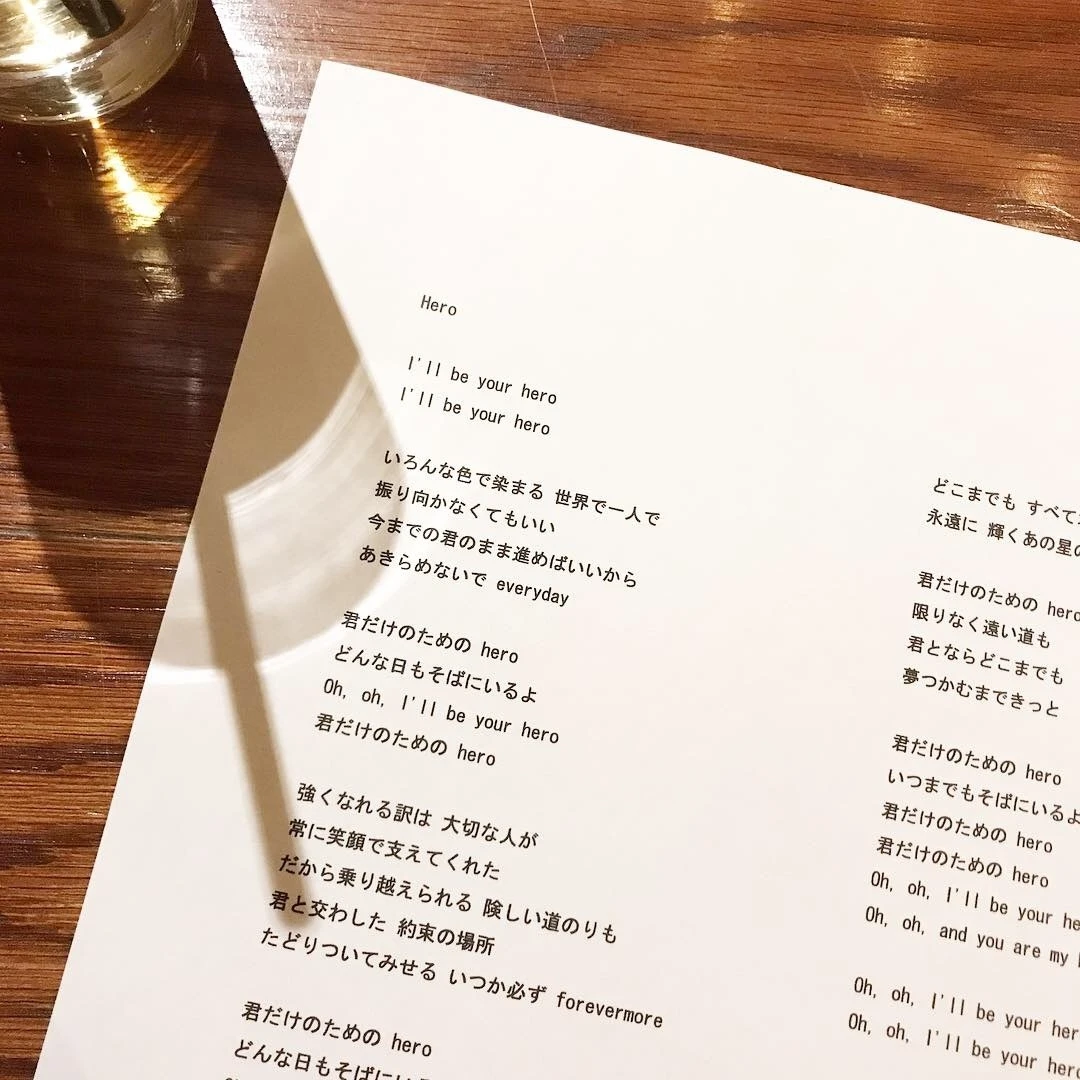 Hero
I'll be your hero
I'll be your hero
いろんな色で染まる 世界で一人で
振り向かなくてもいい
今までの君のまま進めばいいから
あきらめないで everyday
君だけのための hero
どんな日もそばにいるよ
Oh, oh, I'll be your hero
君だけのための hero
強くなれる訳は 大切な人が
常に笑顔で支えてくれた
だから乗り越えられる 険しい道のりも
君と交わした 約束の場所
たどりついてみせる いつか必ず forevermore
君だけのための hero
どんな日もそばにい
どこまでも すべて
永遠に 輝くあの星の
君だけのための hero
限りなく遠い道も
君とならどこまでも
夢つかむまできっと
君だけのための hero
いつまでもそばにいるよ
君だけのための hero
君だけのための hero
Oh, oh, I'll be your he
Oh, oh, and you are my
Oh, oh, I'll be your her
Oh, oh, I'll be your hero